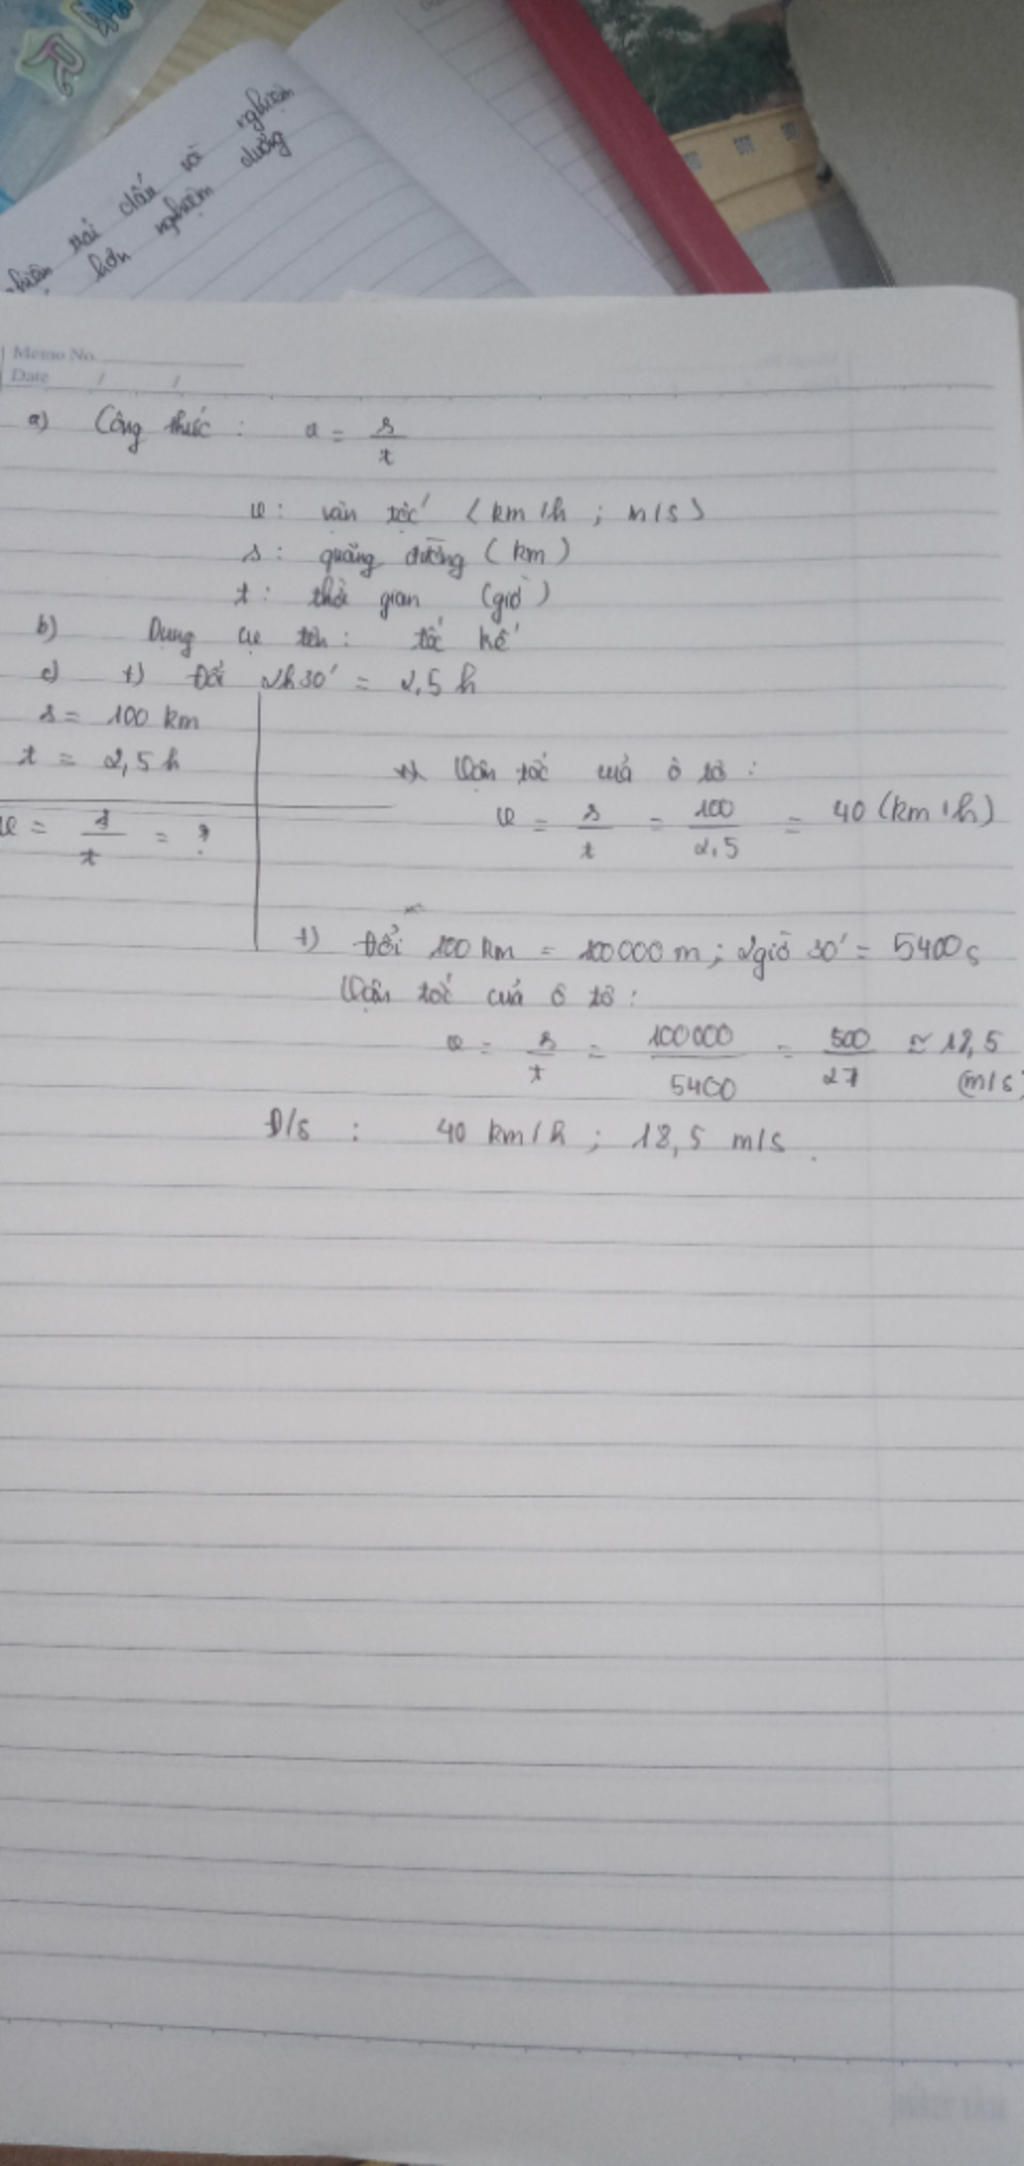 R
nghiệm
trái dấu và
hơn nghiệm dương
Memo No.
Date / /
a) Công thức : v = s/t
v : vận tốc (km/h ; m/s)
s : quãng đường (km)
t : thời gian (giờ)
b) Dụng cụ tên : tốc kế
c) +) Đổi 2h30' = 2,5 h
s = 100 km
t = 2,5 h
v = s/t = ?
Vận tốc của ô tô :
v = s/t = 100/2,5 = 40 (km/h)
+) Đổi 100 km = 100000 m ; 2giờ 30' = 5400s
Vận tốc của ô tô :
v = s/t = 100000/5400 = 500/27 ≈ 18,5 (m/s)
Đ/s : 40 km/h ; 18,5 m/s .